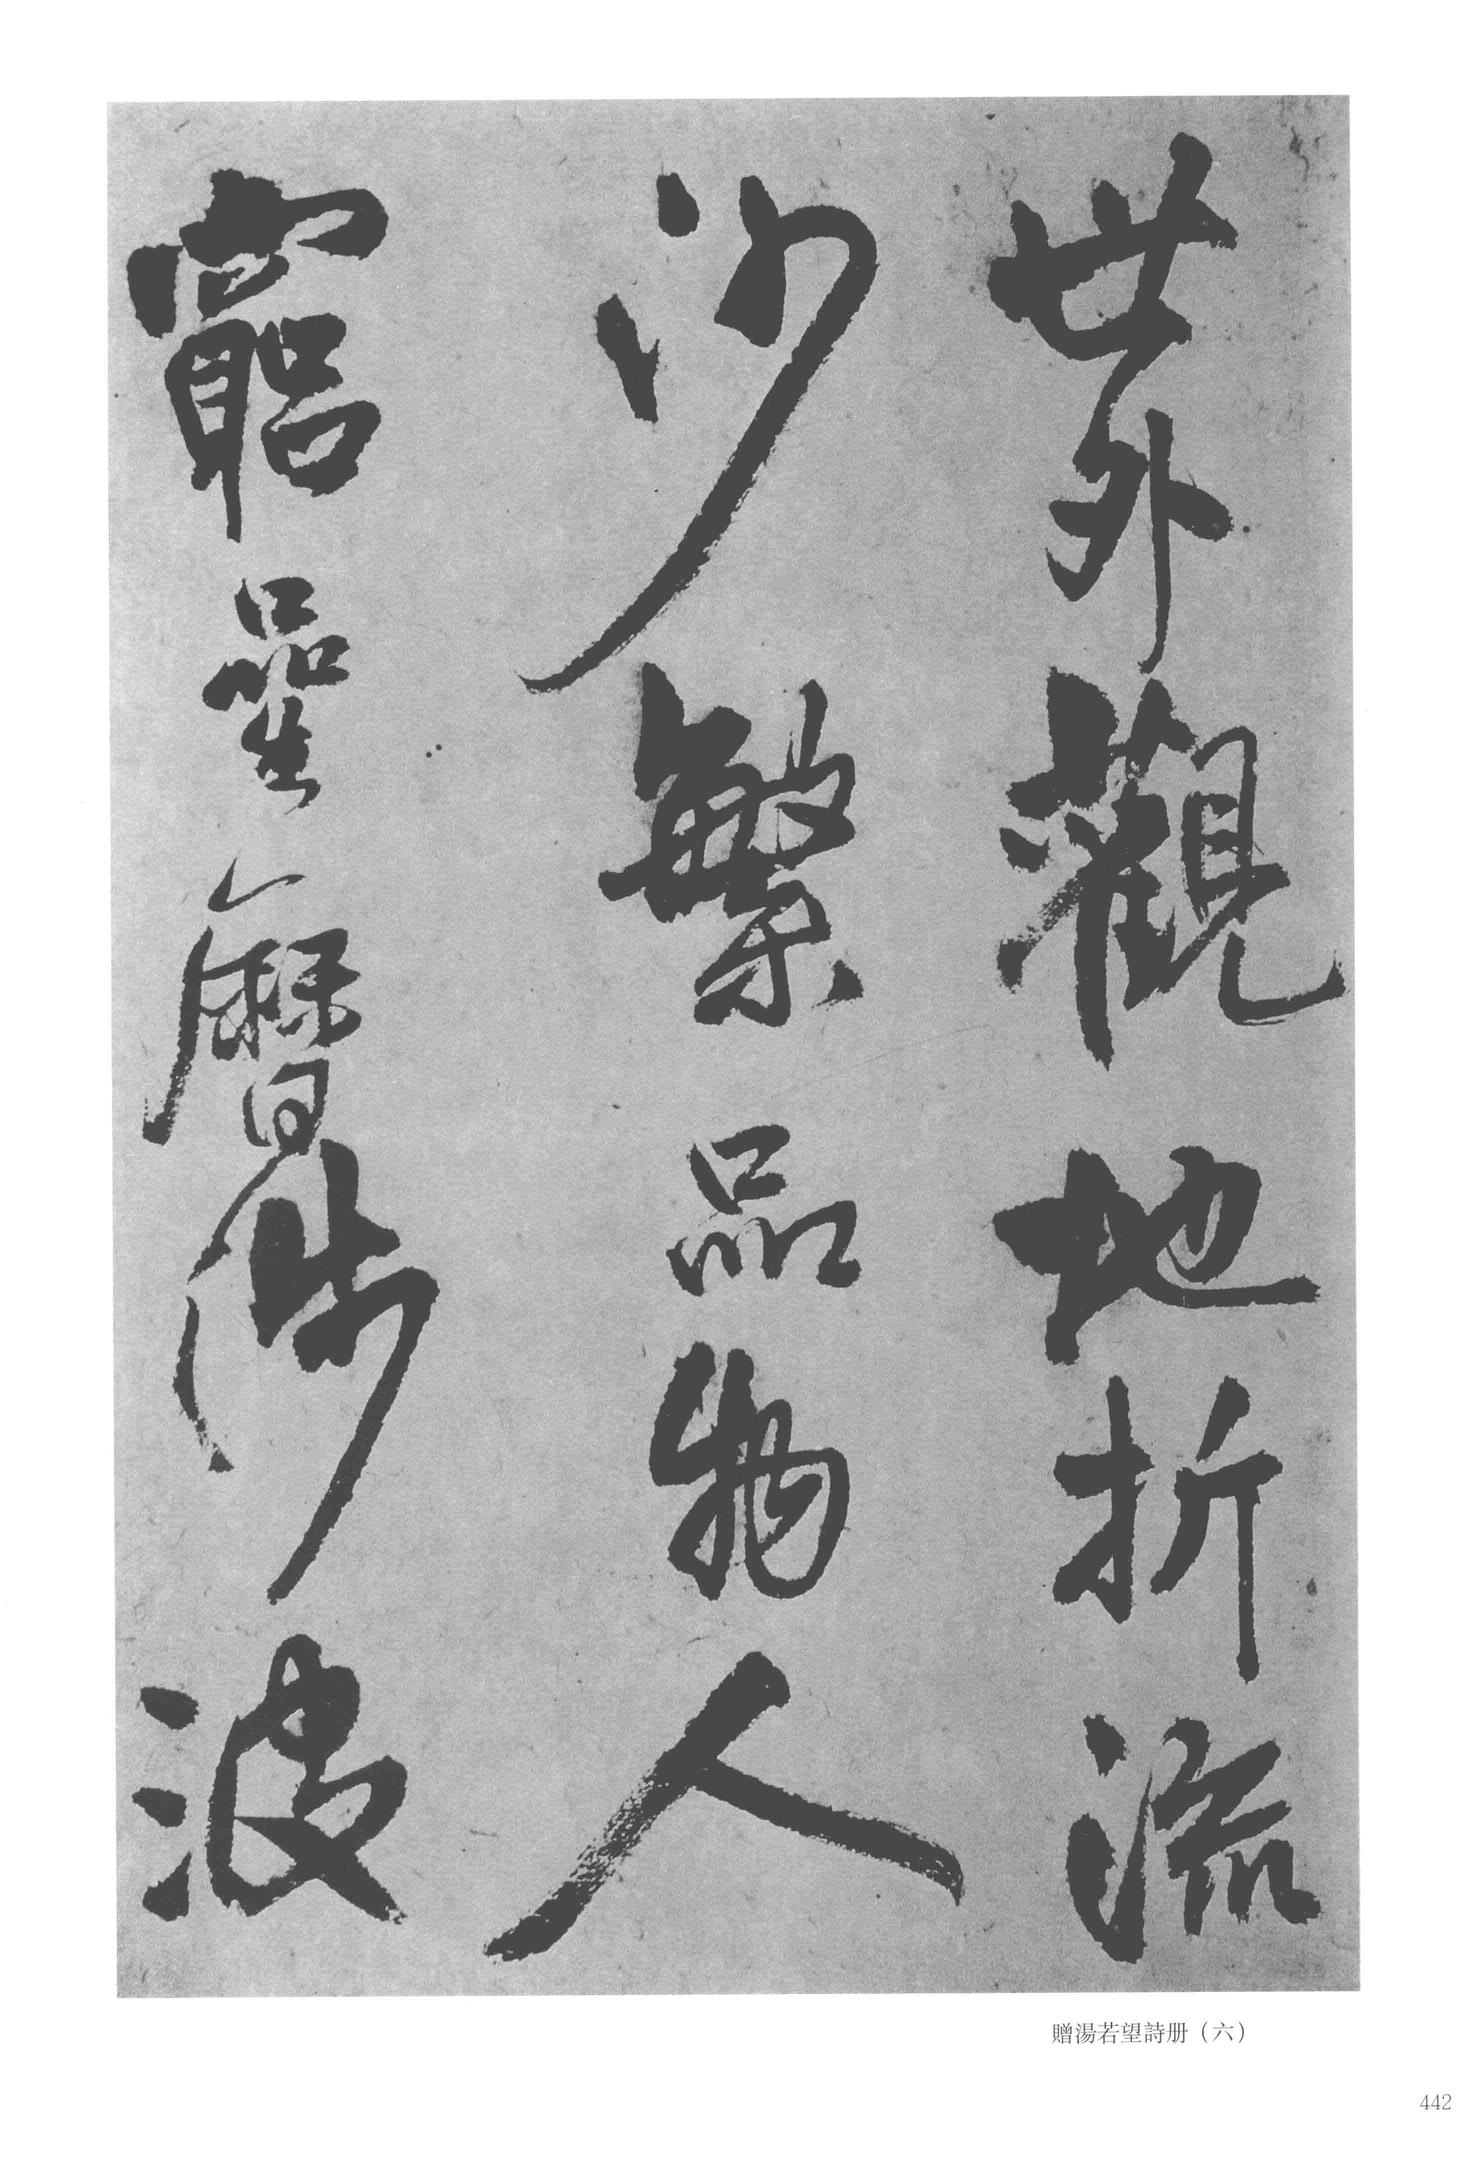 世外觀地折流
沙繁品物人
窮星曆涉波
贈湯若望詩册（六）
442